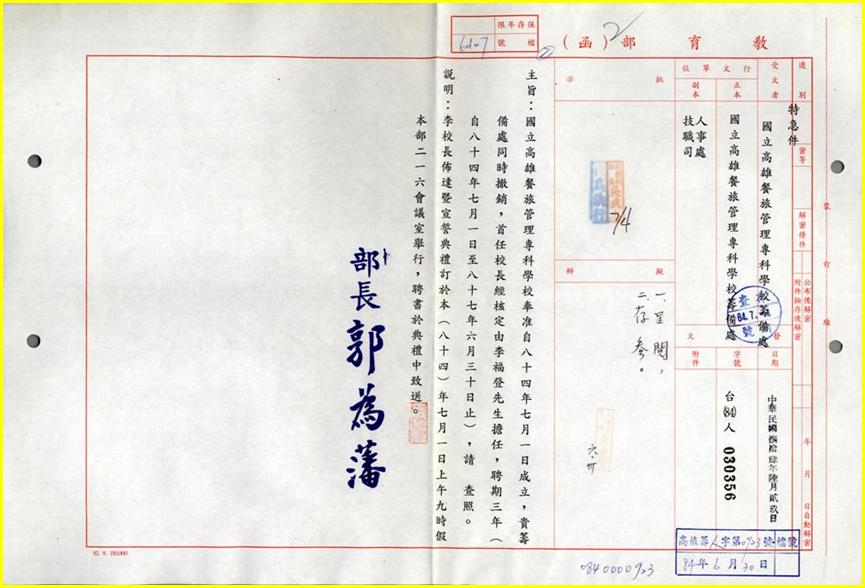 教育部（函）
保存年限
檔號
速別
特急件
密等
解密條件
公布後解密
附件抽存後解密
年月日自動解密
受文者
國立高雄餐旅管理專科學校籌備處
行文單位
正本
國立高雄餐旅管理專科學校籌備處
副本
人事處
技職司
發文
日期
中華民國捌拾肆年陸月貳玖日
字號
台(84)人 030356
附件
批示
7/4
擬辦
一、呈閱。
二、存參。
主旨：國立高雄餐旅管理專科學校奉准自八十四年七月一日成立，貴籌
備處同時撤銷，首任校長經核定由李福登先生擔任，聘期三年（
自八十四年七月一日至八十七年六月三十日止），請 查照。
說明：李校長佈達暨宣誓典禮訂於本（八十四）年七月一日上午九時假
本部二一六會議室舉行，聘書於典禮中致送。
部長 郭為藩
裝訂線
84年6月30日
0840000923
82. 8. 150,000